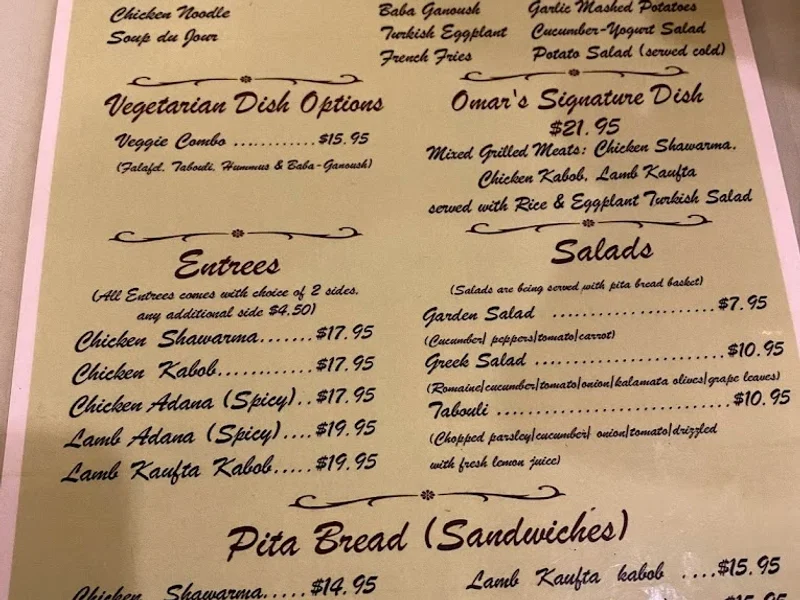 Chicken Noodle
Soup du Jour
Baba Ganoush
Turkish Eggplant
French Fries
Garlic Mashed Potatoes
Cucumber-Yogurt Salad
Potato Salad (served cold)
Vegetarian Dish Options
Veggie Combo ............$15.95
(Falafel, Tabouli, Hummus & Baba-Ganoush)
Omar's Signature Dish
$21.95
Mixed Grilled Meats: Chicken Shawarma,
Chicken Kabob, Lamb Kaufta
served with Rice & Eggplant Turkish Salad
Entrees
(All Entrees comes with choice of 2 sides,
any additional side $4.50)
Chicken Shawarma.......$17.95
Chicken Kabob............$17.95
Chicken Adana (Spicy)..$17.95
Lamb Adana (Spicy)....$19.95
Lamb Kaufta Kabob.....$19.95
Salads
(Salads are being served with pita bread basket)
Garden Salad .....................$7.95
(Cucumber| peppers|tomato|carrot)
Greek Salad ........................$10.95
(Romaine|cucumber|tomato|onion|kalamata olives|grape leaves)
Tabouli ..............................$10.95
(Chopped parsley|cucumber| onion|tomato|drizzled
with fresh lemon juice)
Pita Bread (Sandwiches)
Chicken Shawarma.....$14.95
Lamb Kaufta kabob ....$15.95